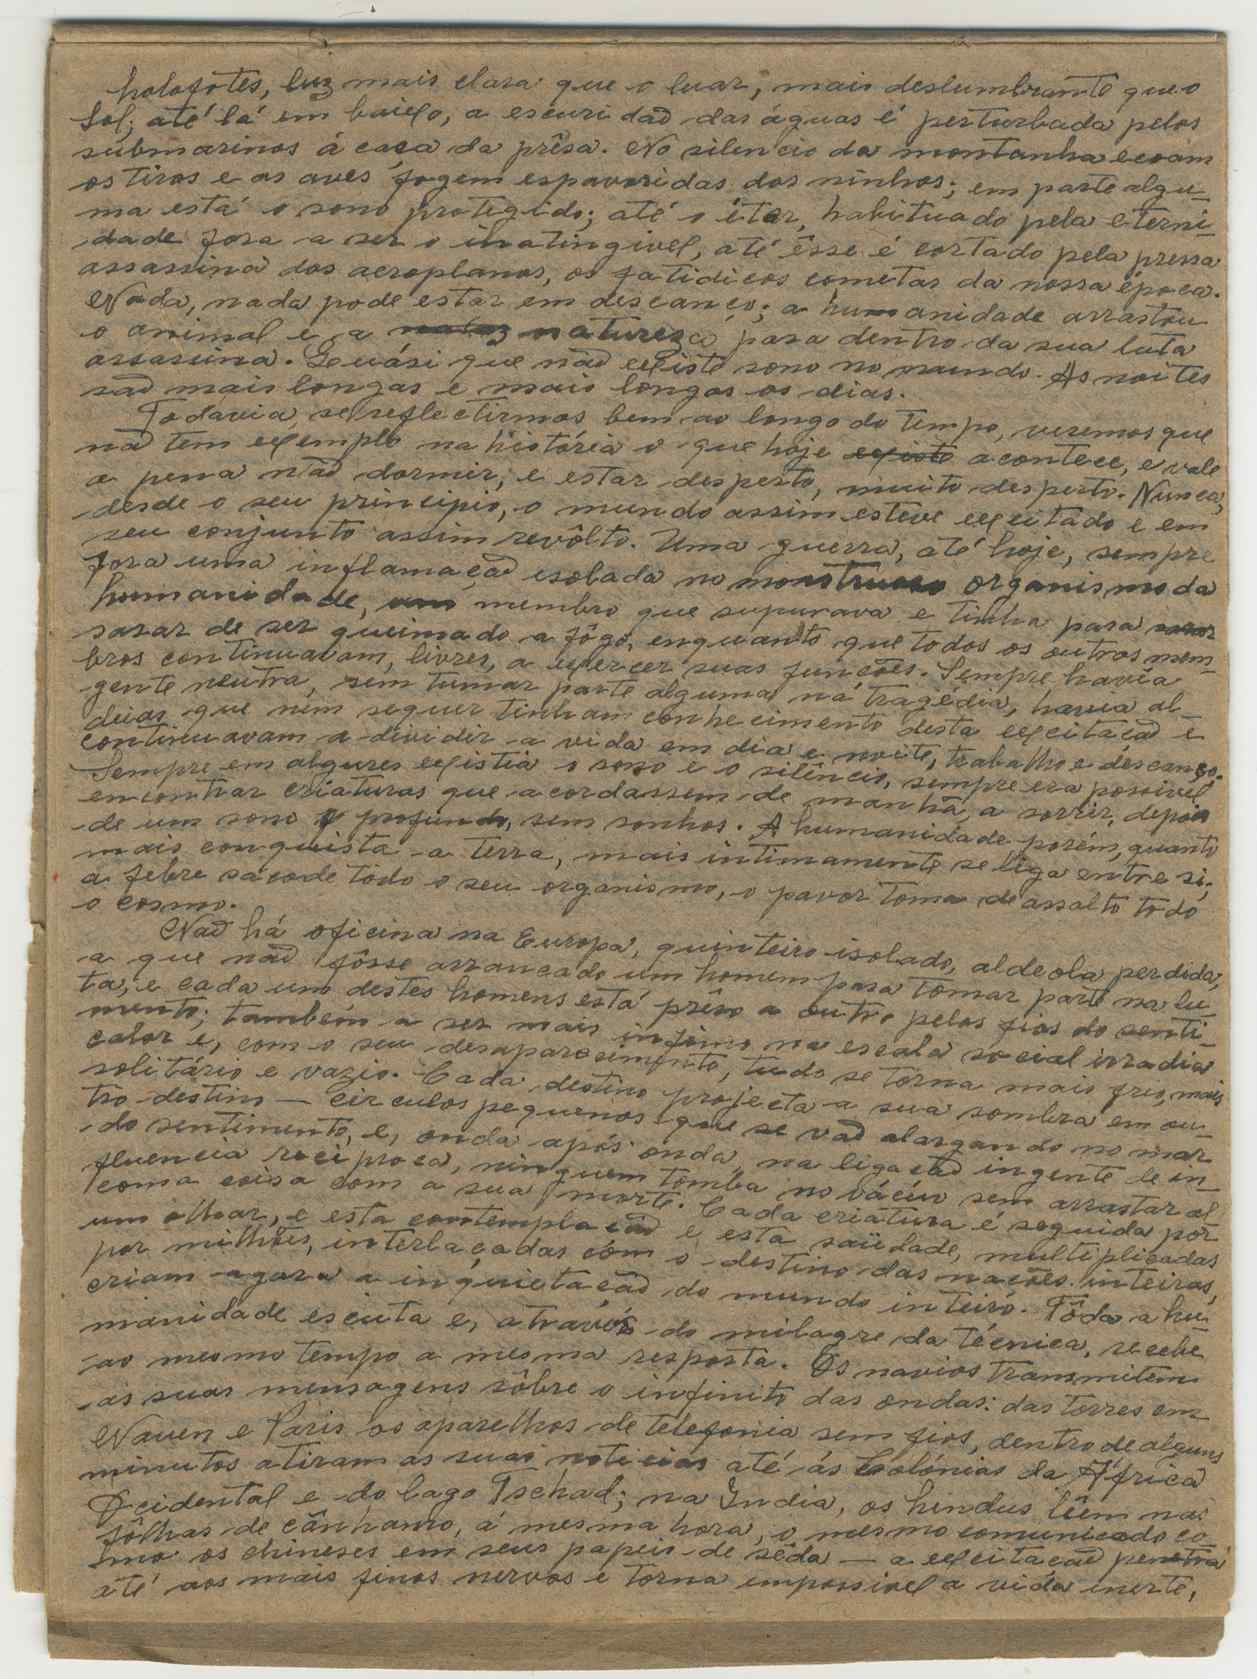 holofotes, luz mais clara que o luar, mais deslumbrante que o
Sol; até lá em baixo, a escuridaõ das águas é perturbada pelos
submarinos á caça da prêsa. No silencio da montanha ecoam
os tiros e as aves fogem espavoridas dos ninhos; em parte algu-
ma está o sono protegido; até o éter, habituado pela eterni-
dade fora a ser o inatingivel, até êsse é cortado pela pressa
assassina dos aeroplanos, os fatidicos cometas da nossa época.
Nada, nada pode estar em descanço; a humanidade arrastou
o animal e a naturesa para dentro da sua luta
assassina. Quási que naõ existe sono no mundo. As noites
saõ mais longas e mais longos os dias.
Todavia, se reflectirmos bem ao longo do tempo, veremos que
naõ tem exemplo na história o que hoje existe acontece, e vale
a pena naõ dormir, e estar desperto, muito desperto. Nunca,
desde o seu principio, o mundo assim esteve excitado e em
seu conjunto assim revôlto. Uma guerra, até hoje, sempre
fora uma inflamaçaõ isolada no monstruoso organismo da
humanidade, um membro que supurava e tinha para
sarar de ser queimado a fôgo, enquanto que todos os outros mem-
bros continuavam, livres, a exercer suas funções. Sempre havia
gente neutra, sem tomar parte alguma na tragédia, havia al-
deias que nem sequer tinham conhecimento desta excitaçaõ e
continuavam a dividir a vida em dia e noite, trabalho e descanço.
Sempre em algures existia o sono e o silêncio, sempre era possivel
encontrar criaturas que acordassem de manhã, a sorrir, depois
de um sono profundo, sem sonhos. A humanidade porém, quanto
mais conquista a terra, mais intimamente se liga entre si;
a febre sacode todo o seu organismo, o pavor toma de assalto todo
o cosmo.
Naõ há oficina na Europa, quinteiro isolado, aldeola perdida,
a que naõ fôsse arrancado um homem para tomar parte na lu-
ta, e cada um destes homens está prêso a outro pelos fios do senti-
mento; também a ser mais infimo na escala social irradia
calor e, com o seu desaparecimento, tudo se torna mais frio, mais
solitário e vazio. Cada destino projecta a sua sombra em ou-
tro destino — circulos pequenos que se vaõ alargando no mar
do sentimento, e, onda após onda, na ligaçaõ ingente de in-
fluencia reciproca, ninguem tomba no vácuo sem arrastar al-
coma coisa com a sua morte. Cada criatura é seguida por
um olhar, e esta contemplaçaõ e esta saüdade, multiplicadas
por milhões, interlaçadas com o destino das nações inteiras,
criam agora a inquietaçaõ do mundo inteiro. Tôda a hu-
manidade escuta e, através do milagre da técnica, recebe
ao mesmo tempo a mesma resposta. Os navios transmitem
as suas mensagens sôbre o infinito das ondas: das torres em
Nauen e Paris os aparelhos de telefonia sem fios, dentro de alguns
minutos atiram as suas noticias até ás Colónias da África
Ocidental e do lago Tschad; na India, os hindus lêm nas
fôlhas de cânhamo, á mesma hora, o mesmo comunicado co-
mo os chineses em seus papeis de sêda — a excitaçaõ penetra
até aos mais finos nervos e torna impossivel a vida inerte,